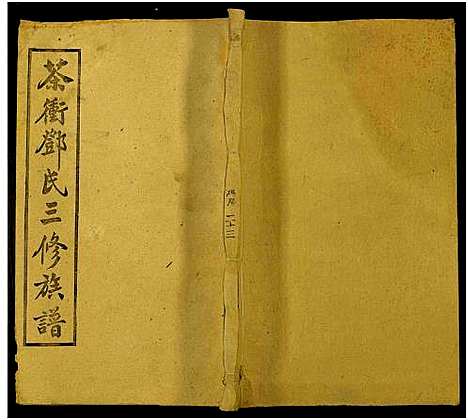 茶衝鄧氏三修族譜
二十三